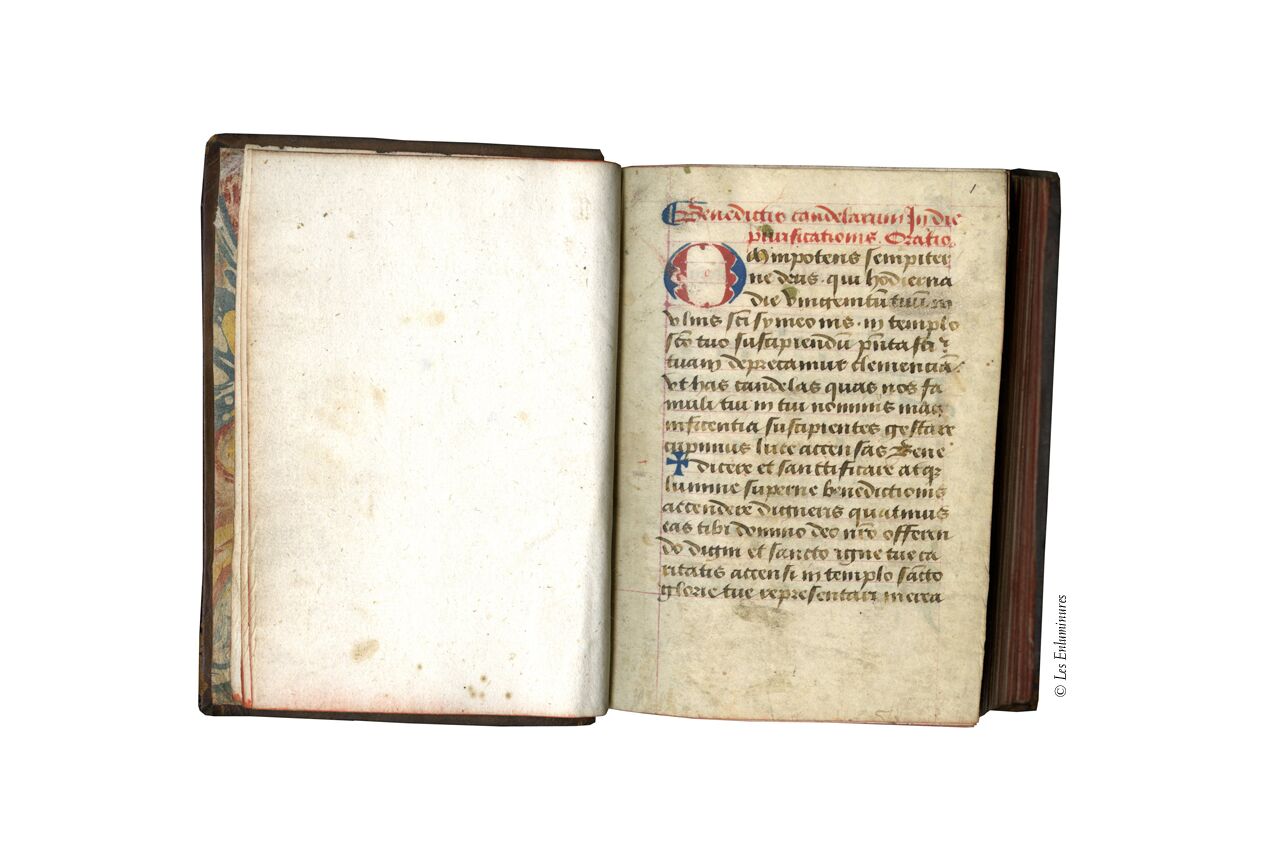 1
Benedictio candelarum In die
purificationis. Oratio.
Omnipotens sempiter
ne deus. qui hodierna
die Unigenitū tuū. in
vlnis sci symeonis. in templo
scō tuo suscipiendū pn̄tasti
tuam deprecamur clemenciā.
vt has candelas quas nos fa
muli tui in tui nominis mag
nificentia suscipientes gestare
cupimus luce accensas Bene
✠ dicere et sanctificare atqȝ
lumine superne benedictionis
accendere digneris quatinus
eas tibi domino deo nr̄o offeren
do digni et sancto igne tue ca
ritatis accensi in templo sācto
glorie tue representari merea
© Les Enluminures